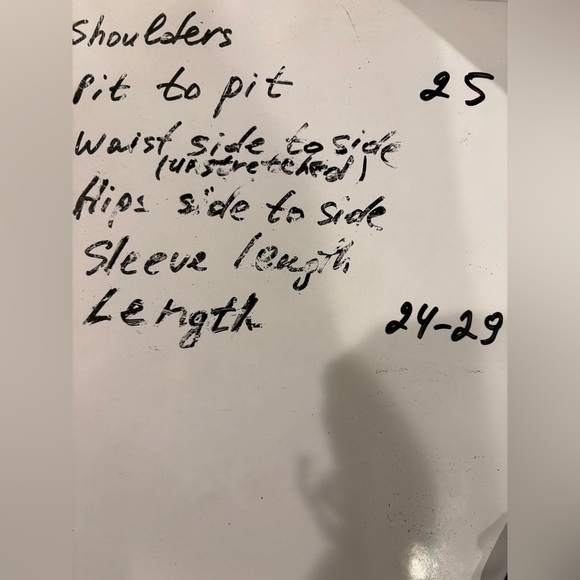 Shoulders
Pit to pit 25
Waist side to side
(unstretched)
Hips side to side
Sleeve length
Length 24-29